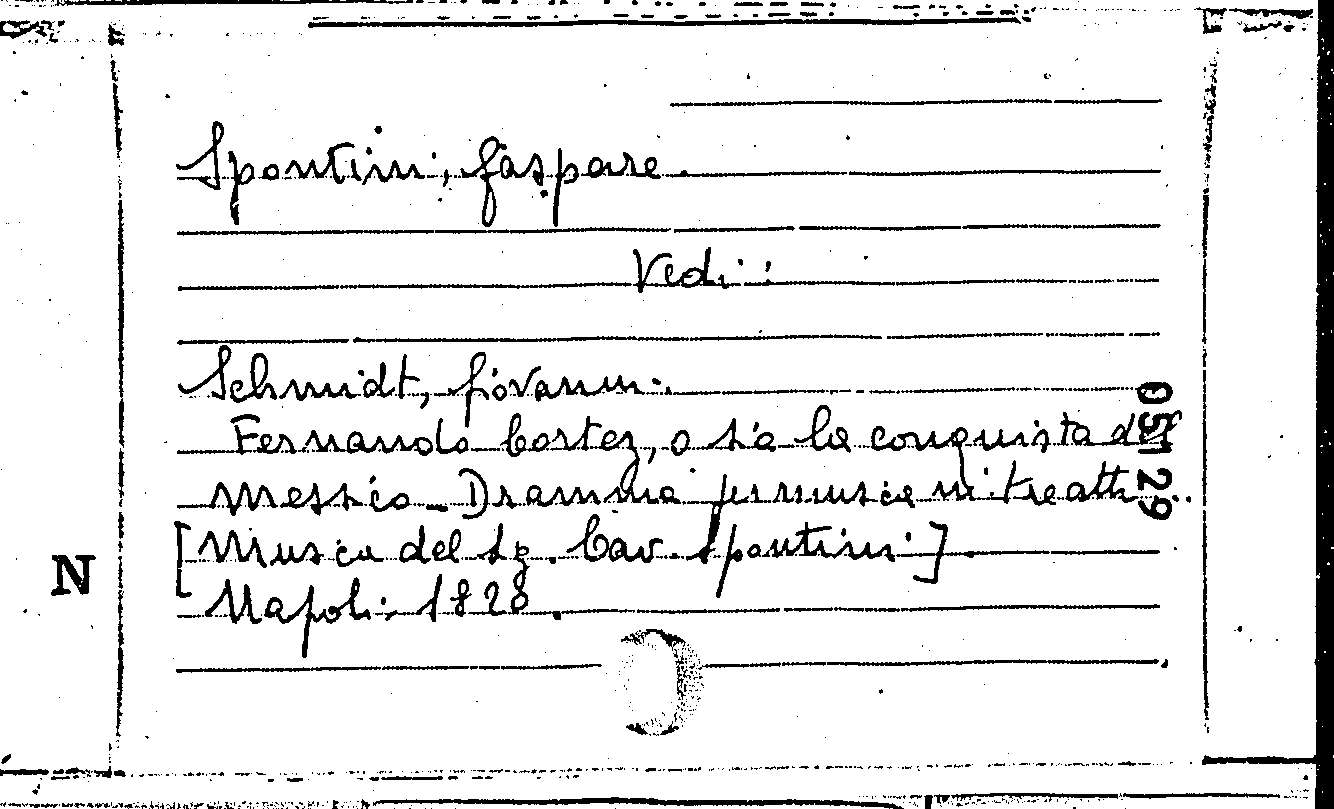 Spontini, Gaspare.
Vedi:
Schmidt, Giovanni.
Fernando Cortez, o sia la conquista del
Messico - Dramma per musica in tre atti.
[Musica del Sig. Cav. Spontini].
Napoli 1828.
05129
N